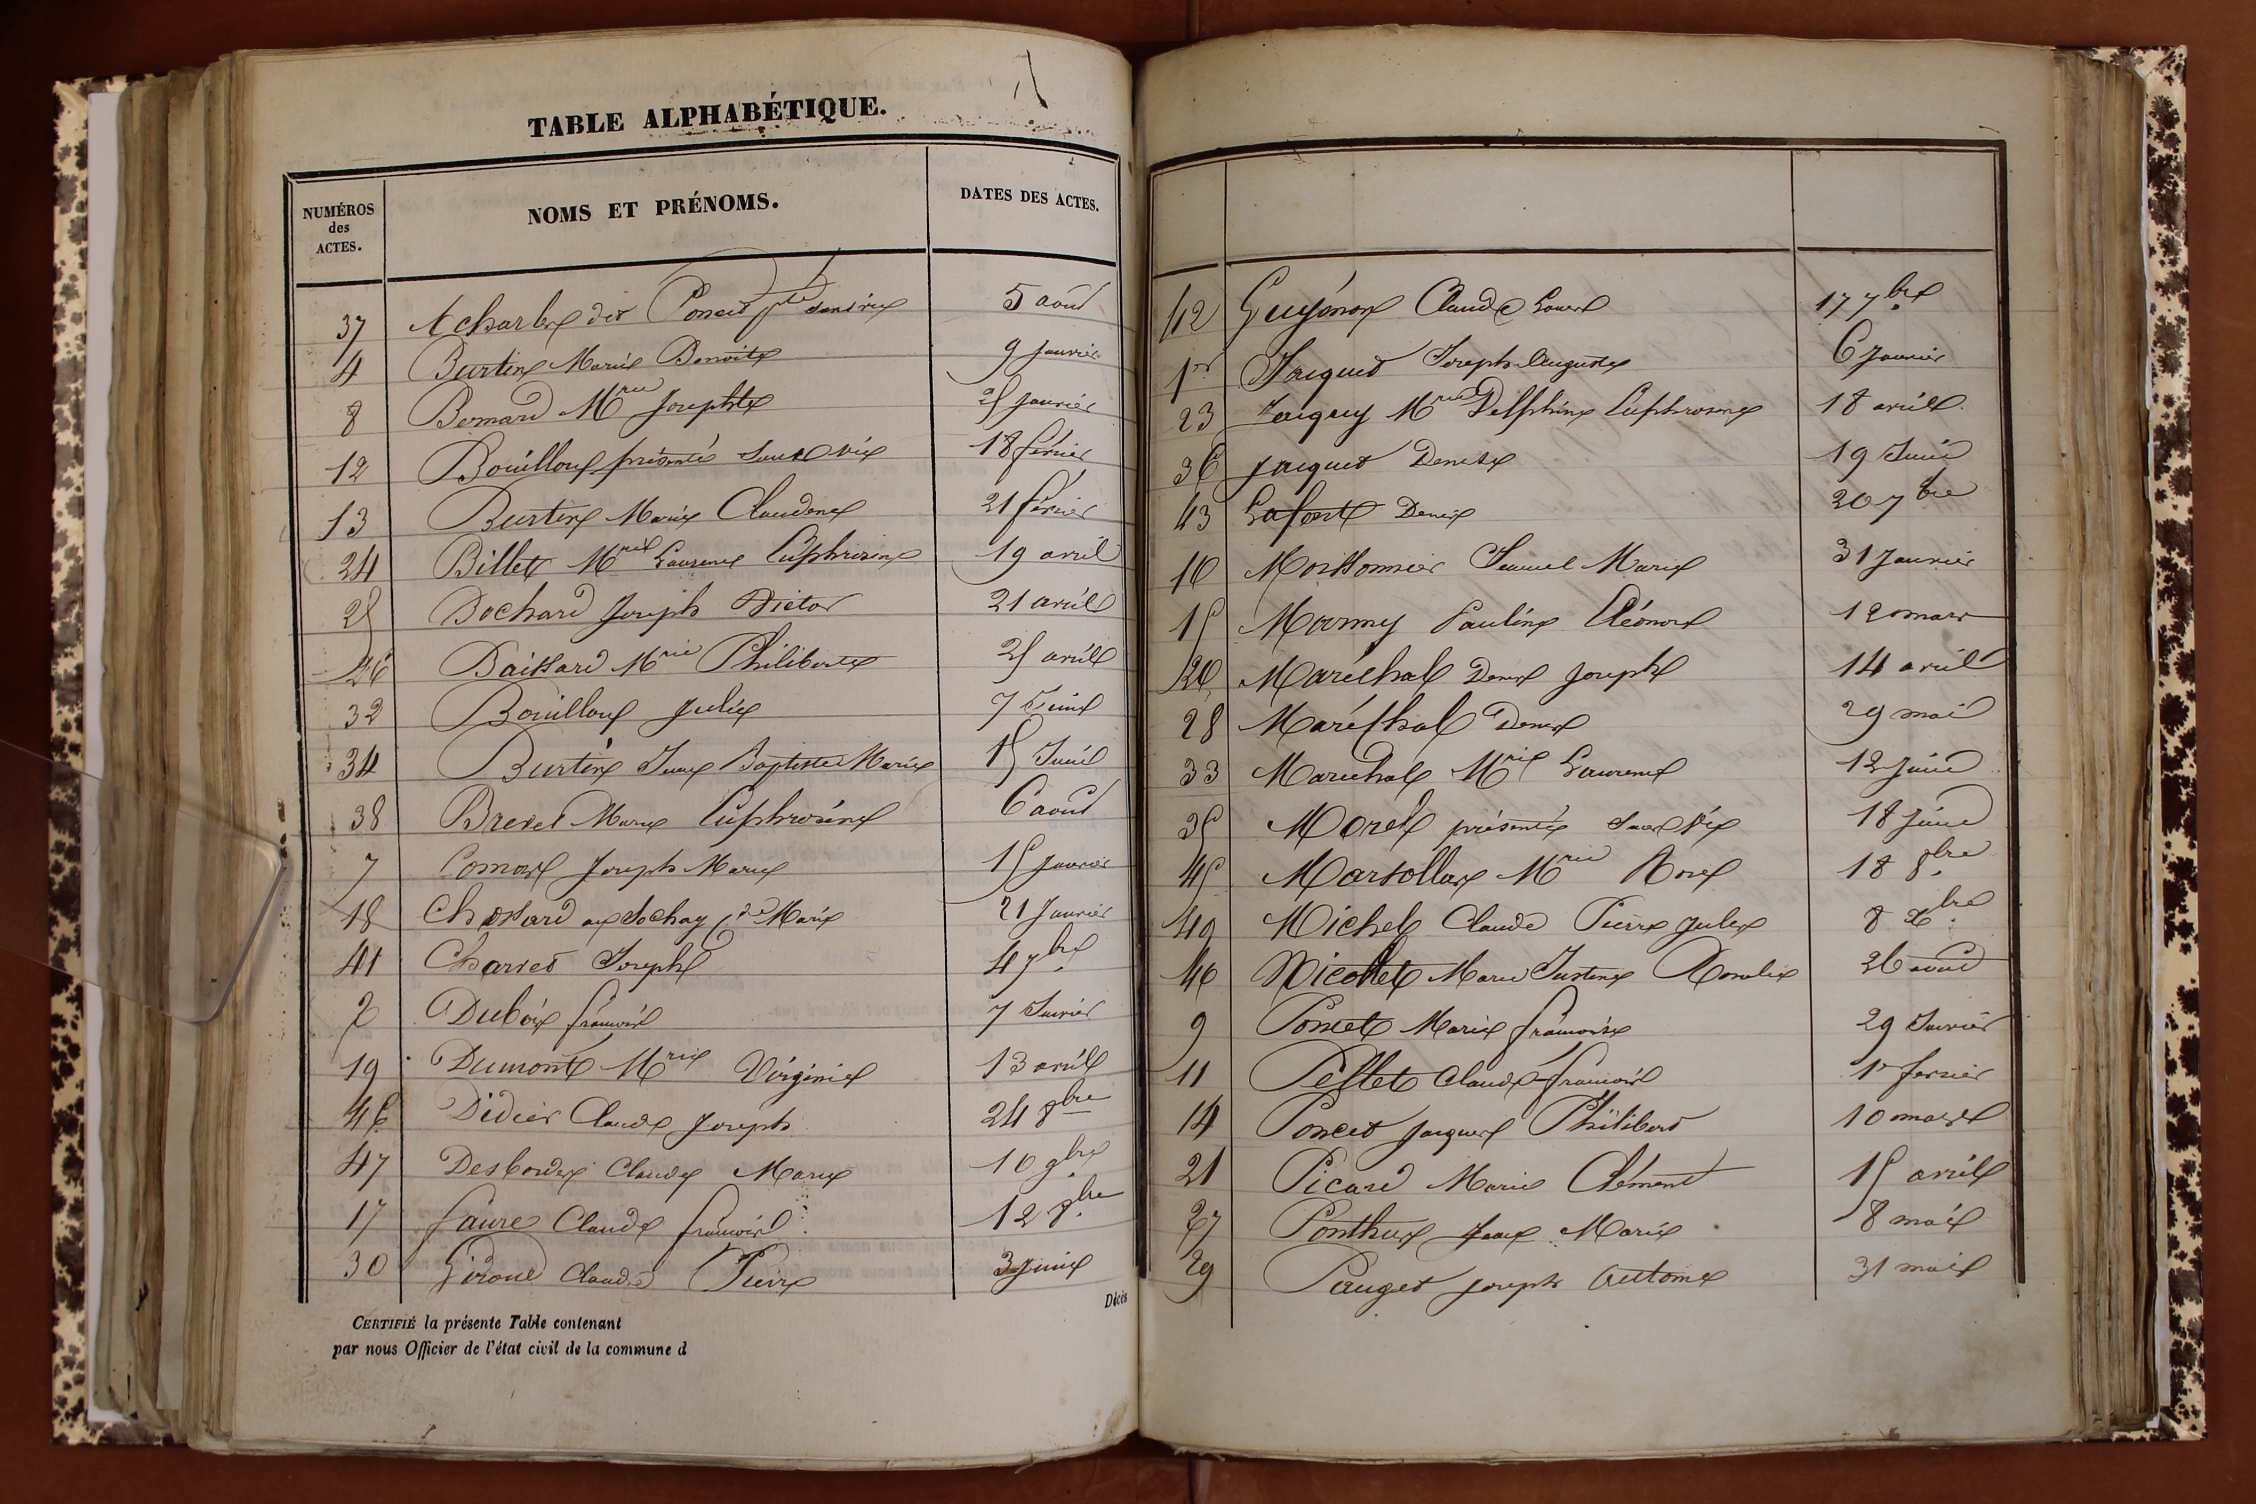 TABLE ALPHABÉTIQUE.
NUMÉROS des ACTES.
NOMS ET PRÉNOMS.
DATES DES ACTES.
37 Acharles dit Poncet pté sans vie 5 août
4 Burtin Marie Benoite 9 Janvier
8 Bernard Mrie Josephte 25 Janvier
12 Bouilloux présenté sans vie 18 février
13 Burtin Marie Claudene 21 février
24 Billet Mrie Laurence Euphrosine 19 avril
25 Bochard Joseph Victor 21 avril
26 Baissard Mrie Philiberte 25 avril
32 Bouilloux Julie 7 Juin
34 Burtin Jean Baptiste Marie 15 Juin
38 Brevet Marie Euphrosine 6 août
7 Joseph Marie 15 Janvier
18 Marie 21 Janvier
41 Charvet Joseph 4 7bre
2 Dubois françois 7 Janvier
19 Dumont Mrie Virginie 13 avril
46 Didier Claude Joseph 24 8bre
47 Desbordes Claude Marie 10 9bre
17 faure Claude françois 12 8bre
30 Giroud Claude Pierre 3 Juin
Décès
CERTIFIÉ la présente Table contenant
par nous Officier de l'état civil de la commune d
42 Guyénon Claude Louis 17 7bre
1er Jacquet Joseph Auguste 6 Janvier
23 Mrie Delphine Euphrosine 18 avril
36 Jacquet Denise 19 Juin
43 Lafont Denis 20 7bre
10 Moissonnier Samuel Marie 31 Janvier
15 Marmy Pauline Eléonore 12 mars
20 Maréchal Denis Joseph 14 avril
28 Maréchal Denis 29 mai
33 Maréchal Mrie Laurence 12 Juin
35 Morel présenté sans vie 18 Juin
45 Marsollas Mrie Rose 18 8bre
49 Michel Claude Pierre Jules 8 Xbre
40 Nicollet Marie Justine Rosalie 26 août
9 Poncet Marie françoise 29 Janvier
11 Pellet Claude françois 1er fevrier
14 Poncet Jacques Philibert 10 mars
21 Picard Marie Clément 15 avril
27 Ponthus Jean Marie 8 mai
29 Pauget Joseph Antoine 31 mai